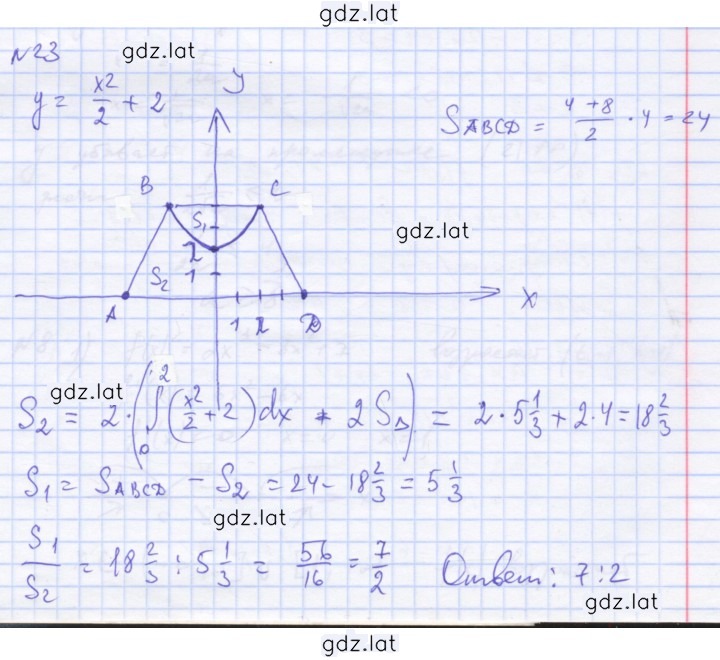 gdz.lat
№23
gdz.lat
y = x²/2 + 2
y
S_ABCD = (4+8)/2 · 4 = 24
B C
S₁
gdz.lat
2
1
S₂
A 1 2 D x
gdz.lat
S₂ = 2·(∫₀² (x²/2 + 2)dx + 2S_Δ) = 2·5 1/3 + 2·4 = 18 2/3
S₁ = S_ABCD − S₂ = 24 − 18 2/3 = 5 1/3
gdz.lat
S₁/S₂ = 18 2/3 : 5 1/3 = 56/16 = 7/2 Ответ: 7:2
gdz.lat
gdz.lat